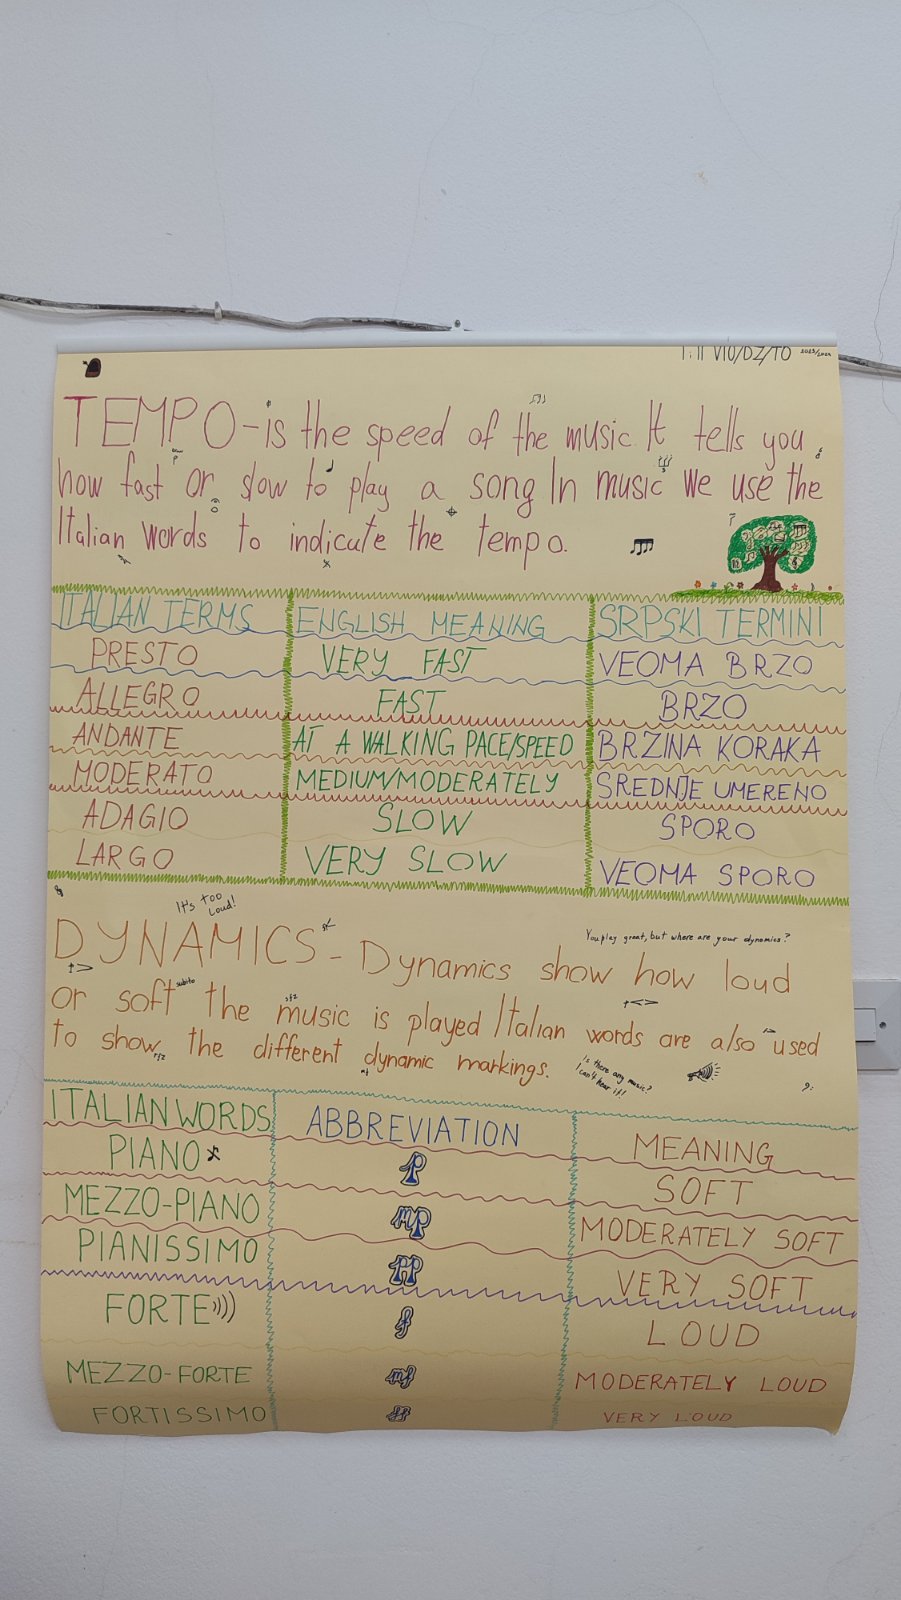 VIO/DZ/TO 2023/2024
TEMPO-is the speed of the music. It tells you
how fast or slow to play a song In music we use the
Italian words to indicate the tempo.
ITALIAN TERMS ENGLISH MEANING SRPSKI TERMINI
PRESTO VERY FAST VEOMA BRZO
ALLEGRO FAST BRZO
ANDANTE AT A WALKING PACE/SPEED BRZINA KORAKA
MODERATO MEDIUM/MODERATELY SREDNJE UMERENO
ADAGIO SLOW SPORO
LARGO VERY SLOW VEOMA SPORO
It's too
loud!
You play great, but where are your dynamics?
DYNAMICS - Dynamics show how loud
subito
or soft the music is played Italian words are also used
sfz
to show the different dynamic markings.
rfz
mf
Is there any music?
I can't hear it!
ITALIAN WORDS ABBREVIATION MEANING
PIANO p SOFT
MEZZO-PIANO mp MODERATELY SOFT
PIANISSIMO pp VERY SOFT
FORTE f LOUD
MEZZO-FORTE mf MODERATELY LOUD
FORTISSIMO ff VERY LOUD